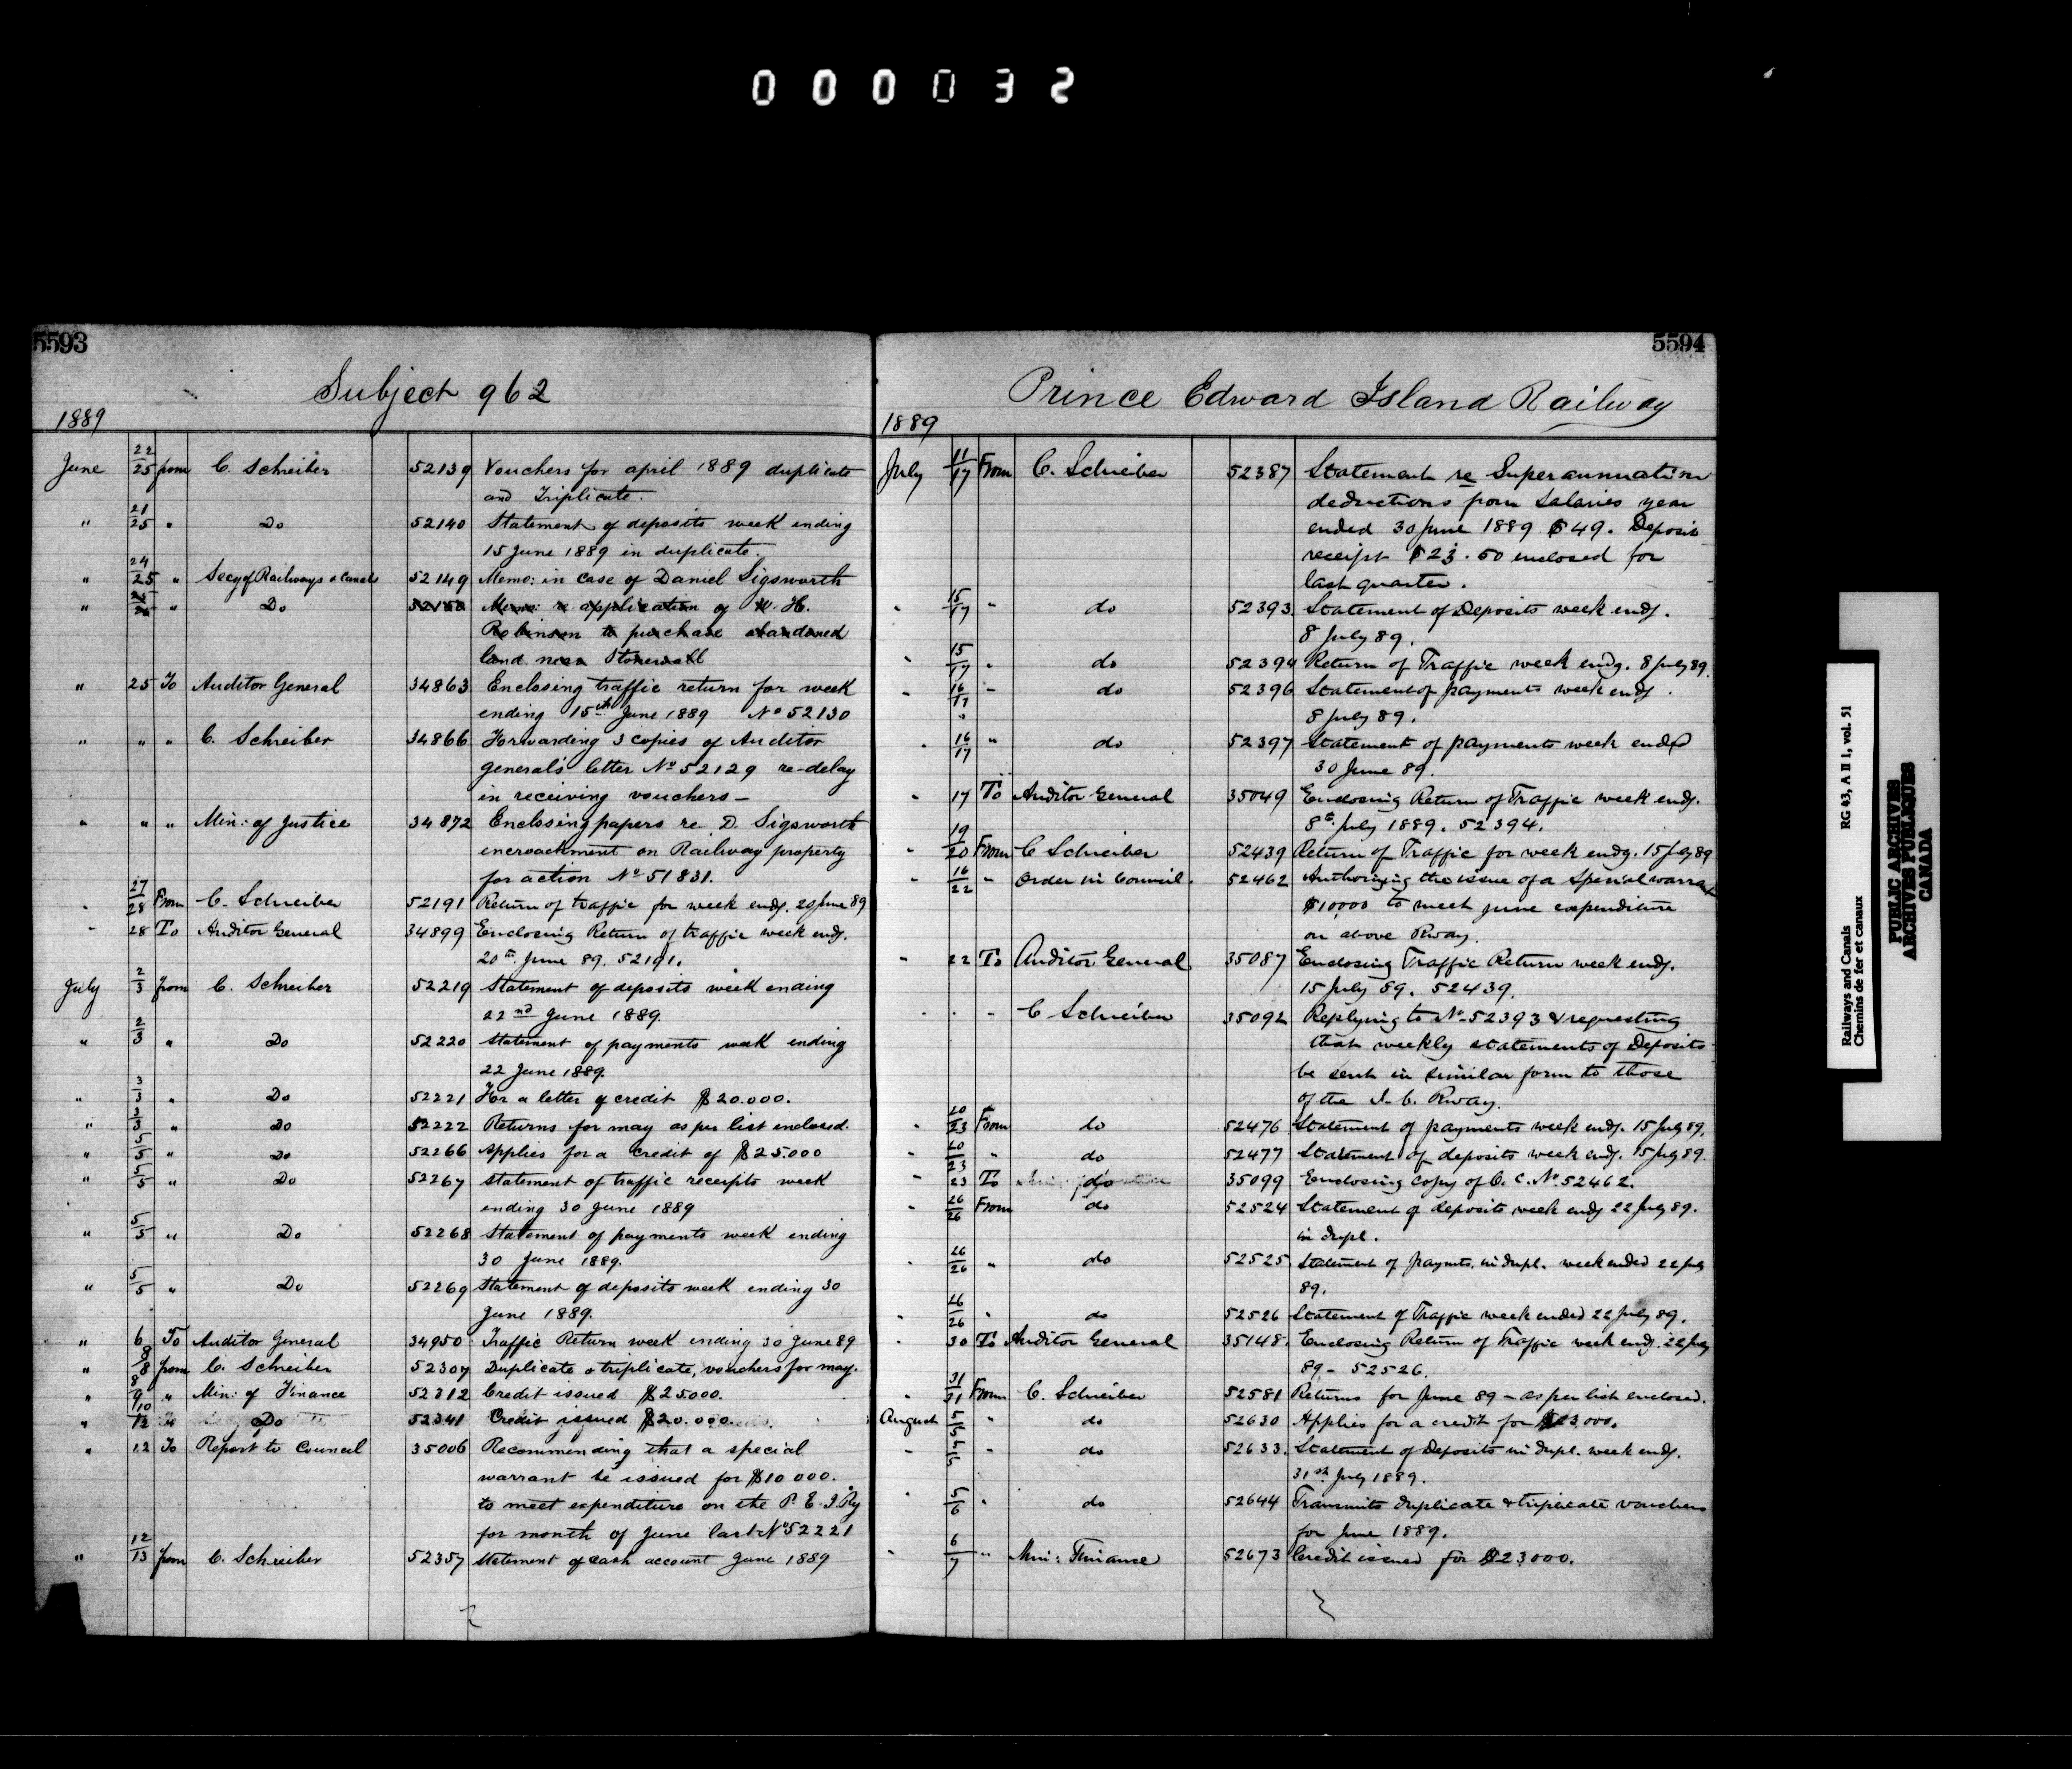 000032
5593
Subject 962
1889
June 22/25 from C. Schreiber 52139 Vouchers for april 1889 duplicate
and Triplicate.
" 21/25 " Do 52140 Statement of deposits week ending
15 June 1889 in duplicate.
" 24/25 " Secy of Railways & Canals 52149 Memo: in case of Daniel Sigsworth
" " Do 52150 Memo: re application of W. H.
Robinson to purchase abandoned
land near Stonewall
" 25 To Auditor General 34863 Enclosing traffic return for week
ending 15th June 1889 No 52130
" " " C. Schreiber 34866 Forwarding 3 copies of Auditor
general's letter No 52129 re-delay
in receiving vouchers—
" " " Min: of Justice 34872 Enclosing papers re D. Sigsworth
encroachment on Railway property
for action No 51831.
" 27/28 From C. Schreiber 52191 Return of traffic for week endg. 20 June 89
" 28 To Auditor General 34899 Enclosing Return of traffic week endg.
20th June 89. 52191.
July 2/3 from C. Schreiber 52219 Statement of deposits week ending
22nd June 1889.
" 2/3 " Do 52220 Statement of payments week ending
22 June 1889.
" 3/3 " Do 52221 For a letter of credit $20.000.
" 3/3 " Do 52222 Returns for may as per list enclosed.
" 5/5 " Do 52266 Applies for a credit of $25.000
" 5/5 " Do 52267 Statement of traffic receipts week
ending 30 June 1889
" 5/5 " Do 52268 Statement of payments week ending
30 June 1889.
" 5/5 " Do 52269 Statement of deposits week ending 30
June 1889.
" 6 To Auditor General 34950 Traffic Return week ending 30 June 89
" 8/8 from C. Schreiber 52307 Duplicate & triplicate, vouchers for may.
" 8/9 " Min: of Finance 52312 Credit issued $25000.
" 10/12 " Do 52341 Credit issued $20.000.
" 12 To Report to Council 35006 Recommending that a special
warrant be issued for $10 000.
to meet expenditure on the P. E. I Ry
for month of June last No 52221
" 12/13 from C. Schreiber 52357 Statement of cash account June 1889
5594
Prince Edward Island Railway
1889
July 11/17 From C. Schreiber 52387 Statement re Superannuation
deductions from Salaries year
ended 30 June 1889 $49. Deposit
receipt $23.50 enclosed for
last quarter.
" 15/17 " do 52393. Statement of Deposits week endg.
8 July 89.
" 15/17 " do 52394 Return of Traffic week endg. 8 July 89.
" 16/17 " do 52396 Statement of payments week endg.
8 July 89.
" 16/17 " do 52397 Statement of payments week ended
30 June 89.
" 17 To Auditor General 35049 Enclosing Return of Traffic week endg.
8th July 1889. 52394.
" 19/20 From C Schreiber 52439 Return of Traffic for week endg. 15 July 89
" 16/22 " Order in Council. 52462 Authorizing the issue of a Special warrant
$10,000 to meet June expenditure
on above Rway.
" 22 To Auditor General 35087 Enclosing Traffic Return week endg.
15 July 89. 52439.
" " " C Schreiber 35092 Replying to No 52393 & requesting
that weekly statements of Deposits
be sent in similar form to those
of the I. C. Rway.
" 20/23 From do 52476 Statement of payments week endg. 15 July 89.
" 20/23 " do 52477 Statement of deposits week endg. 15 July 89.
" 23 To do 35099 Enclosing Copy of O. C. No 52462.
" 26/26 From do 52524 Statement of deposits week endg 22 July 89.
in dupl.
" 26/26 " do 52525 Statement of paymts. in dupl. week ended 22 July
89.
" 26/26 " do 52526 Statement of Traffic week ended 22 July 89.
" 30 To Auditor General 35148. Enclosing Return of Traffic week endg. 22 July
89 - 52526.
" 31/31 From C. Schreiber 52581 Returns for June 89 - as per list enclosed.
August 5/5 " do 52630 Applies for a credit for $23,000.
" 5/5 " do 52633. Statement of Deposits in dupl. week endg.
31st July 1889.
" 5/6 " do 52644 Transmits duplicate & triplicate vouchers
for June 1889.
" 6/7 " Min: Finance 52673 Credit issued for $23,000.
Railways and Canals RG 43, A II 1, vol. 51
Chemins de fer et canaux
PUBLIC ARCHIVES
ARCHIVES PUBLIQUES
CANADA